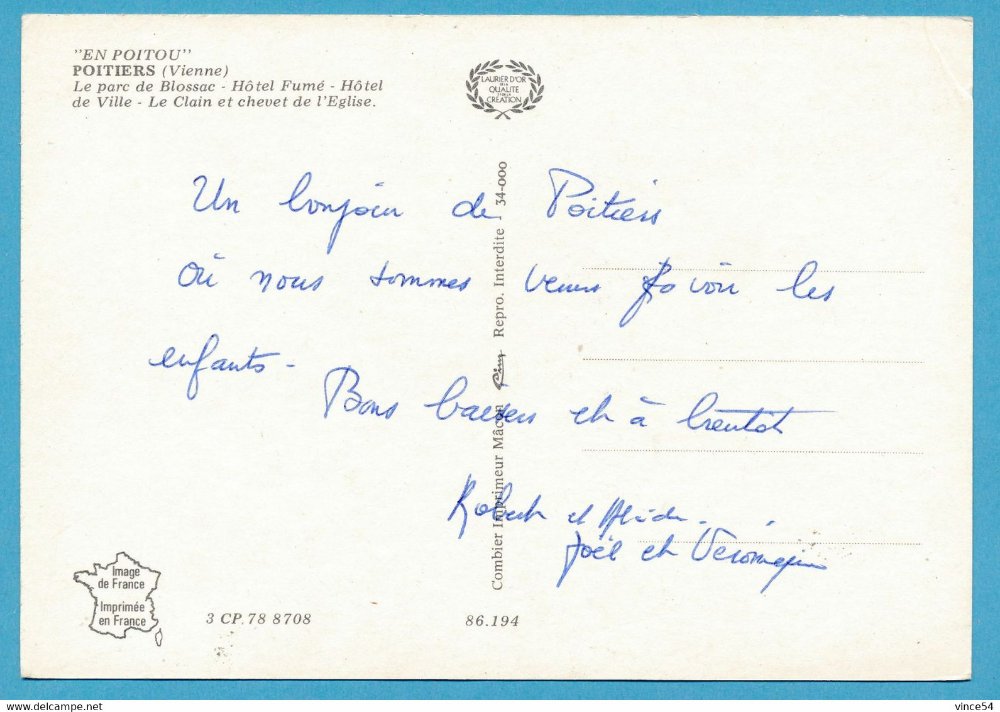 "EN POITOU"
POITIERS (Vienne)
Le parc de Blossac - Hôtel Fumé - Hôtel
de Ville - Le Clain et chevet de l'Eglise.
LAURIER D'OR
DE LA
QUALITÉ
CRÉATION
Un bonjour de Poitiers
où nous sommes venus voir les
enfants -
Bons baisers et à bientôt
Robert et
Joël et Véronique
Combier Imprimeur Mâcon Cim Repro. Interdite 34-000
Image
de France
Imprimée
en France
3 CP. 78 8708
86.194
www.delcampe.net
vince54